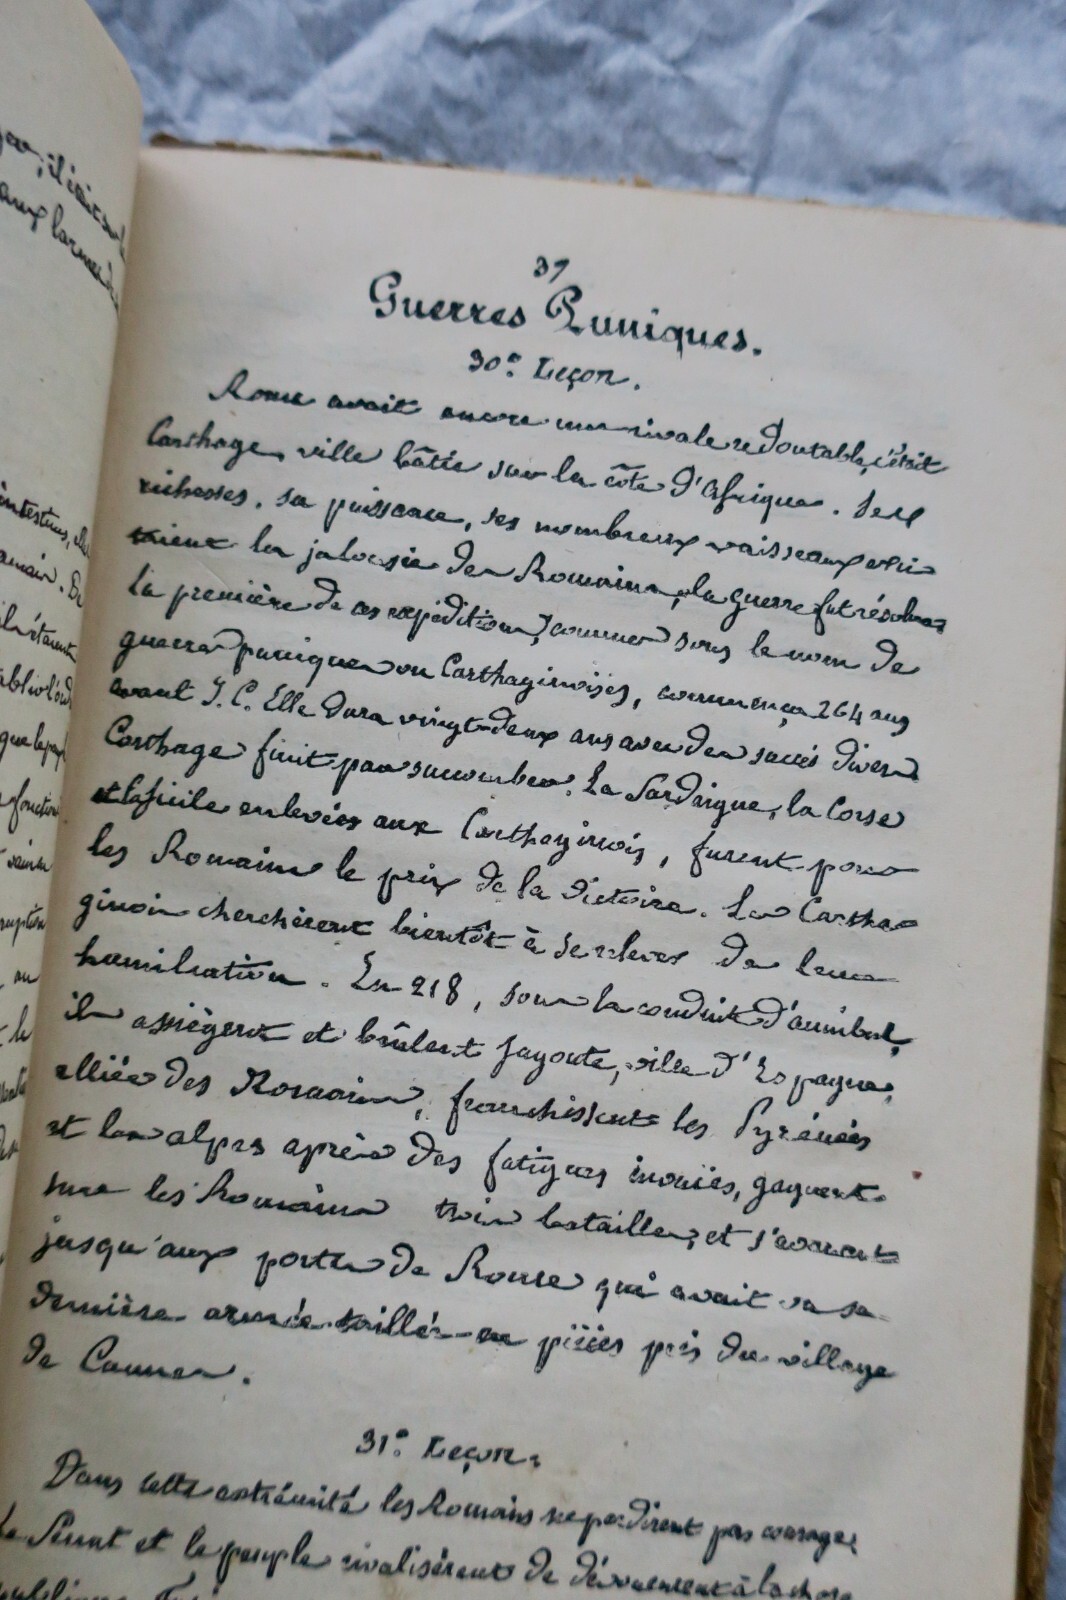 37
Guerres Puniques.
30e Leçon.
Rome avait encore une rivale redoutable, c'était
Carthage, ville bâtie sur la côte d'Afrique. Ses
richesses, sa puissance, ses nombreux vaisseaux exci-
taient la jalousie des Romains, la guerre fut résolue
la première de ces expéditions, connues sous le nom de
guerres puniques ou Carthaginoises, commença 264 ans
avant J. C. Elle dura vingt-deux ans avec des succès divers
Carthage finit par succomber. La Sardaigne, la Corse
et la Sicile enlevées aux Carthaginois, furent pour
les Romains le prix de la victoire. Les Cartha-
ginois cherchèrent bientôt à se relever de leur
humiliation. En 218, sous la conduite d'Annibal,
ils assiègent et brûlent Sagonte, ville d'Espagne,
alliée des Romains, franchissent les Pyrénées
et les alpes après des fatigues inouïes, gagnent
sur les Romains trois batailles, et s'avancent
jusqu'aux portes de Rome qui avait vu sa
dernière armée taillée en pièces près du village
de Cannes.
31e Leçon.
Dans cette extrémité les Romains ne perdirent pas courage,
Le Sénat et le peuple rivalisèrent de dévouement à la chose